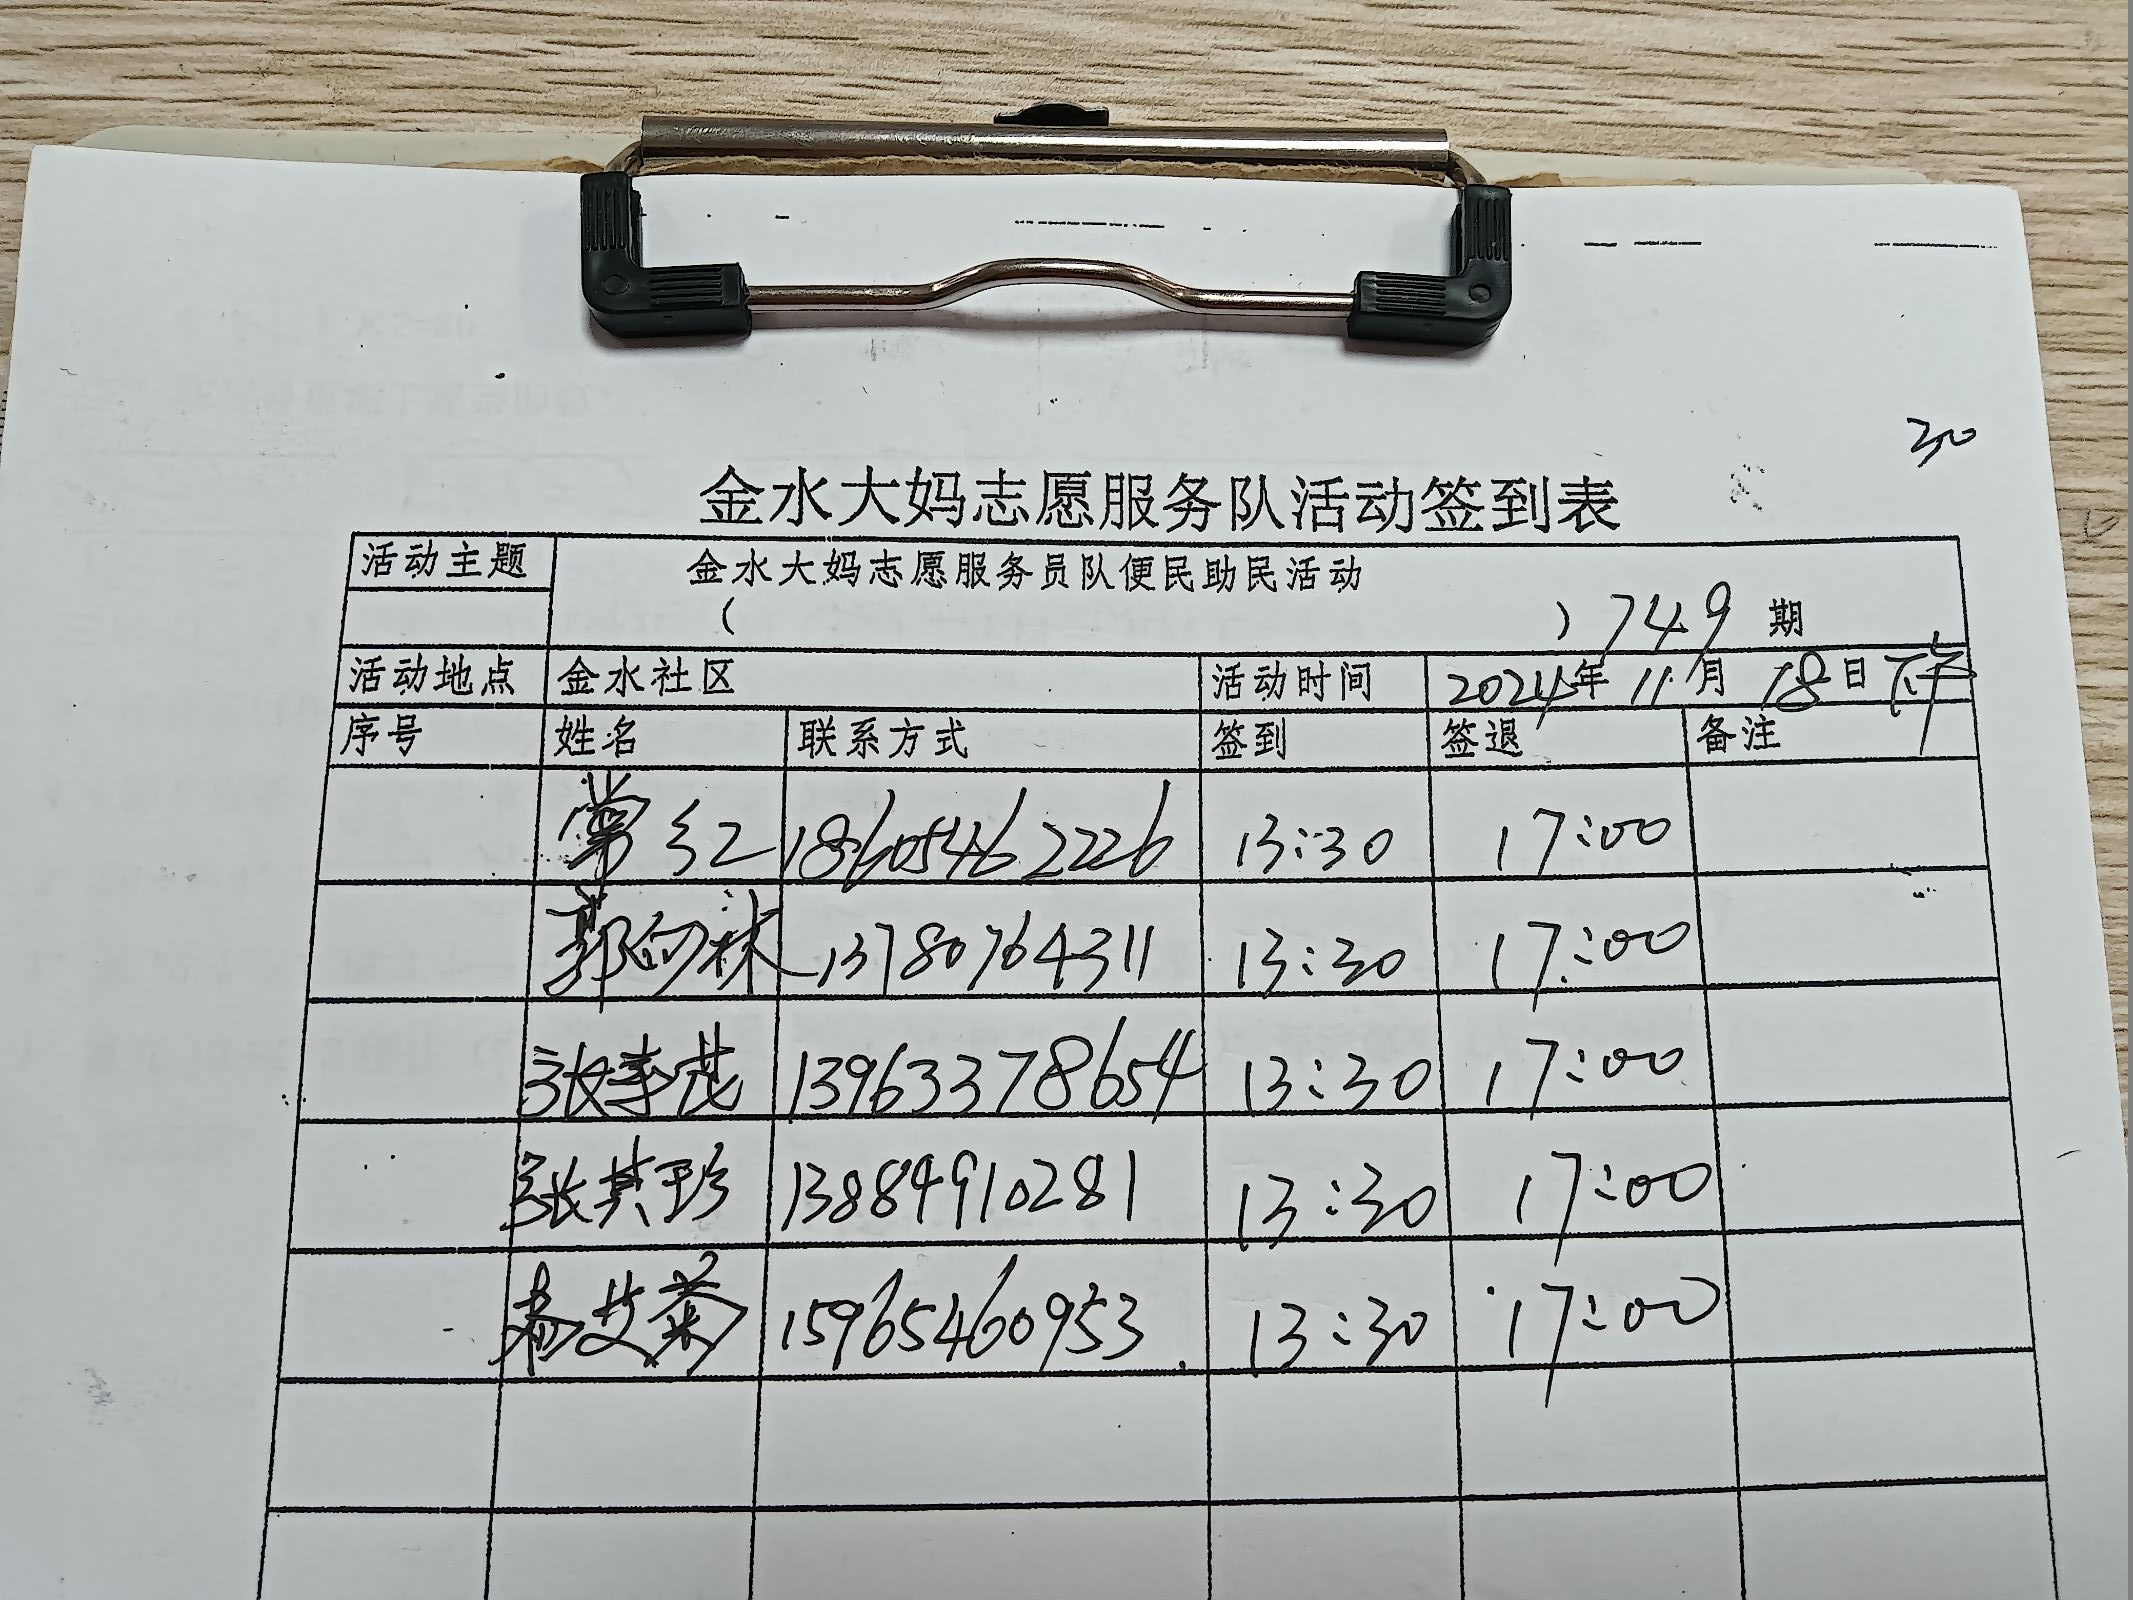 30
金水大妈志愿服务队活动签到表
活动主题 金水大妈志愿服务员队便民助民活动
( ) 749 期
活动地点 金水社区 活动时间 2024年 11月 18日 下午
序号 姓名 联系方式 签到 签退 备注
常红 18605462226 13:30 17:00
郭向林 13780764311 13:30 17:00
张李茂 13963378654 13:30 17:00
张其珍 13884910281 13:30 17:00
艾菊 15965460953 13:30 17:00